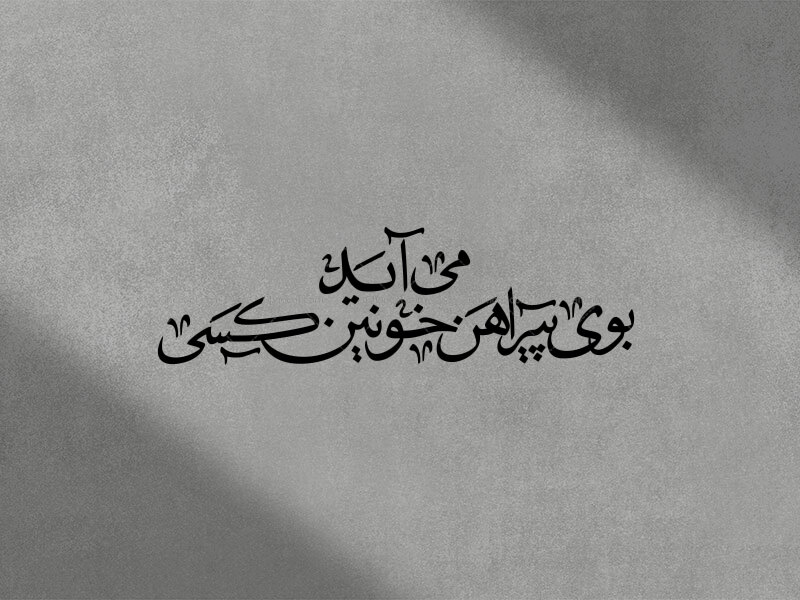 می آید
بوی پیراهن خونین کسی